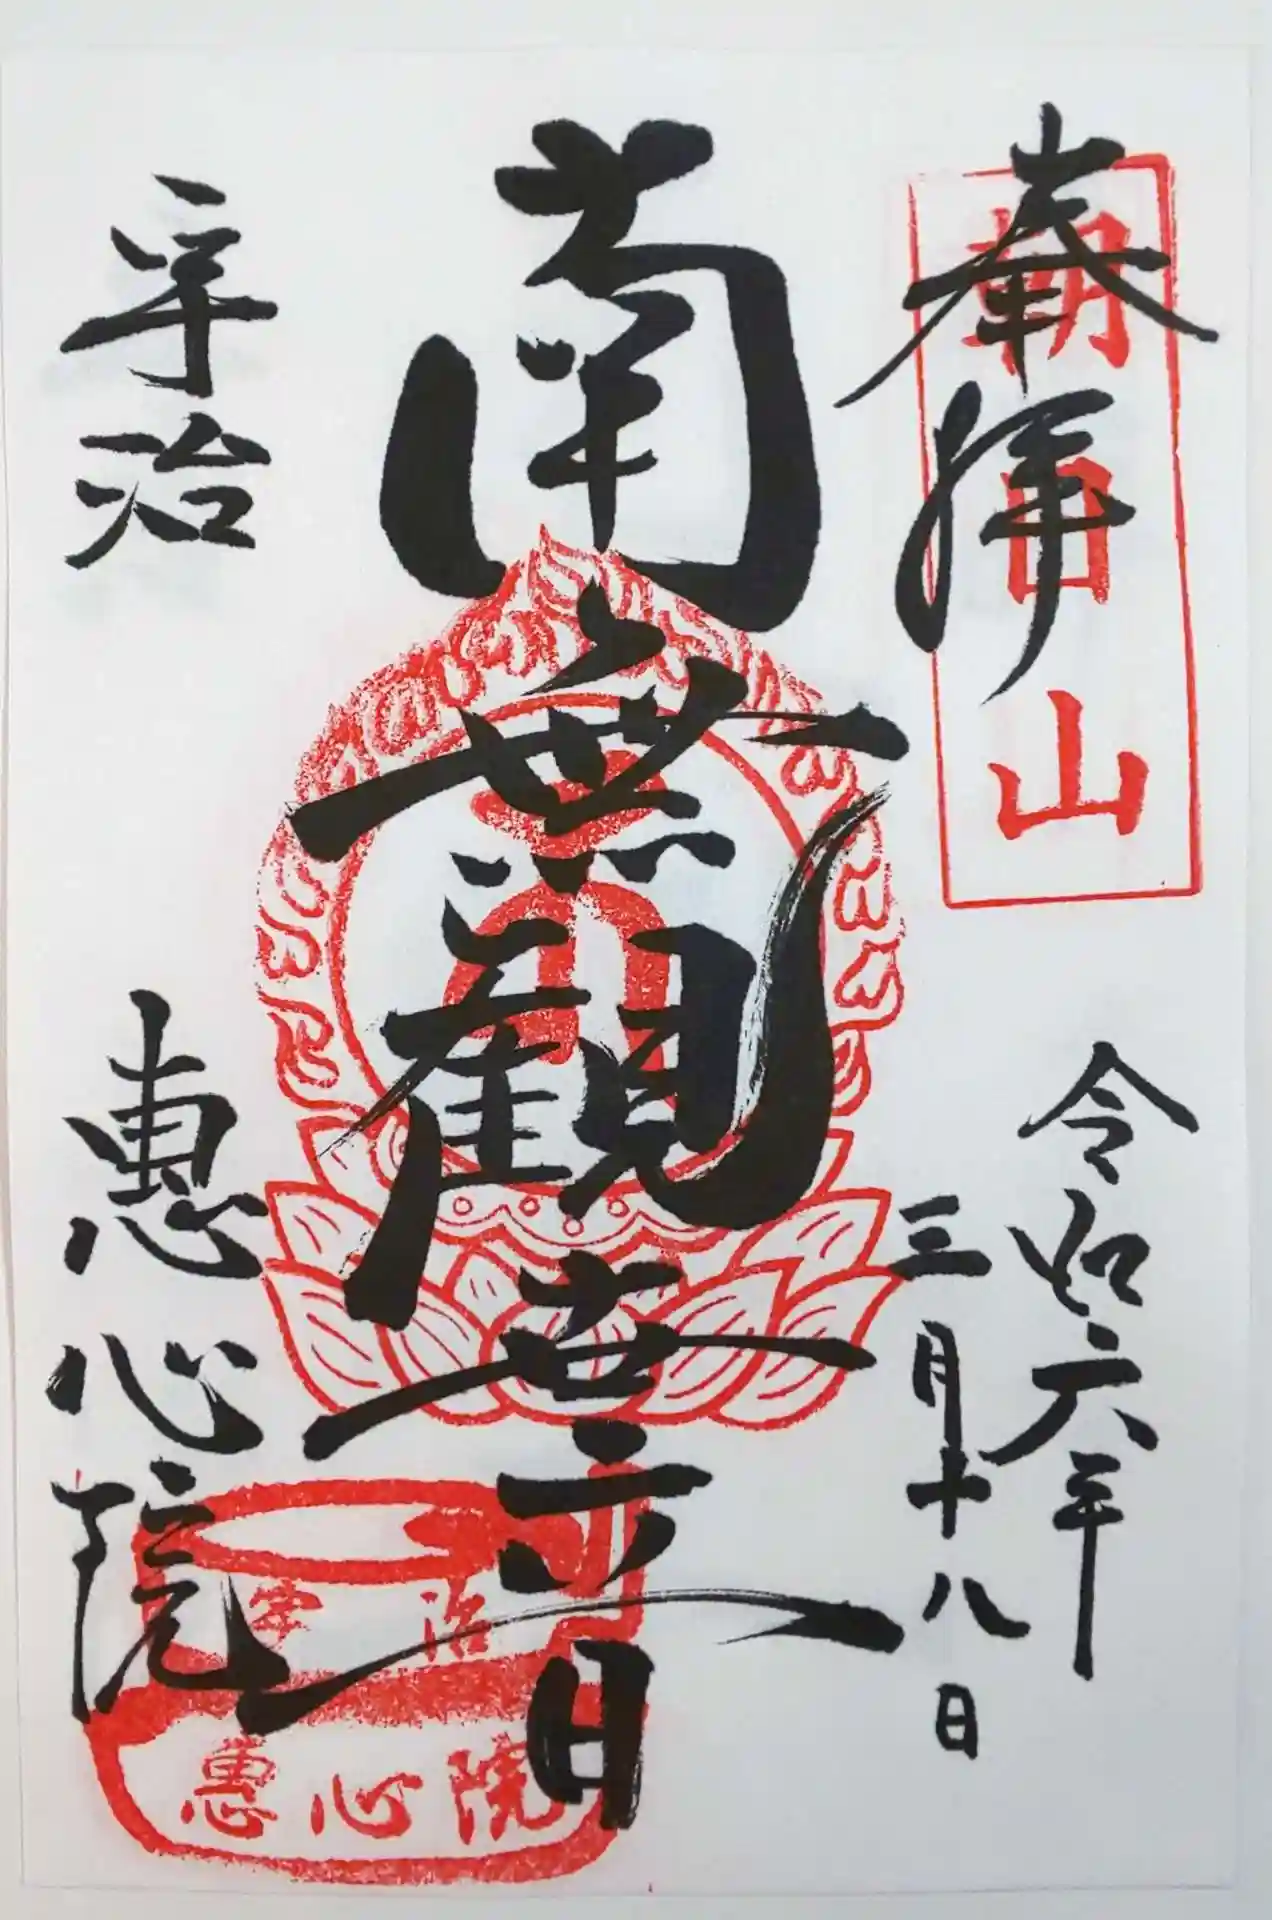 奉拝
朝日山
令和六年
三月十八日
南無観世音
宇治
惠心院
宇治
惠心院